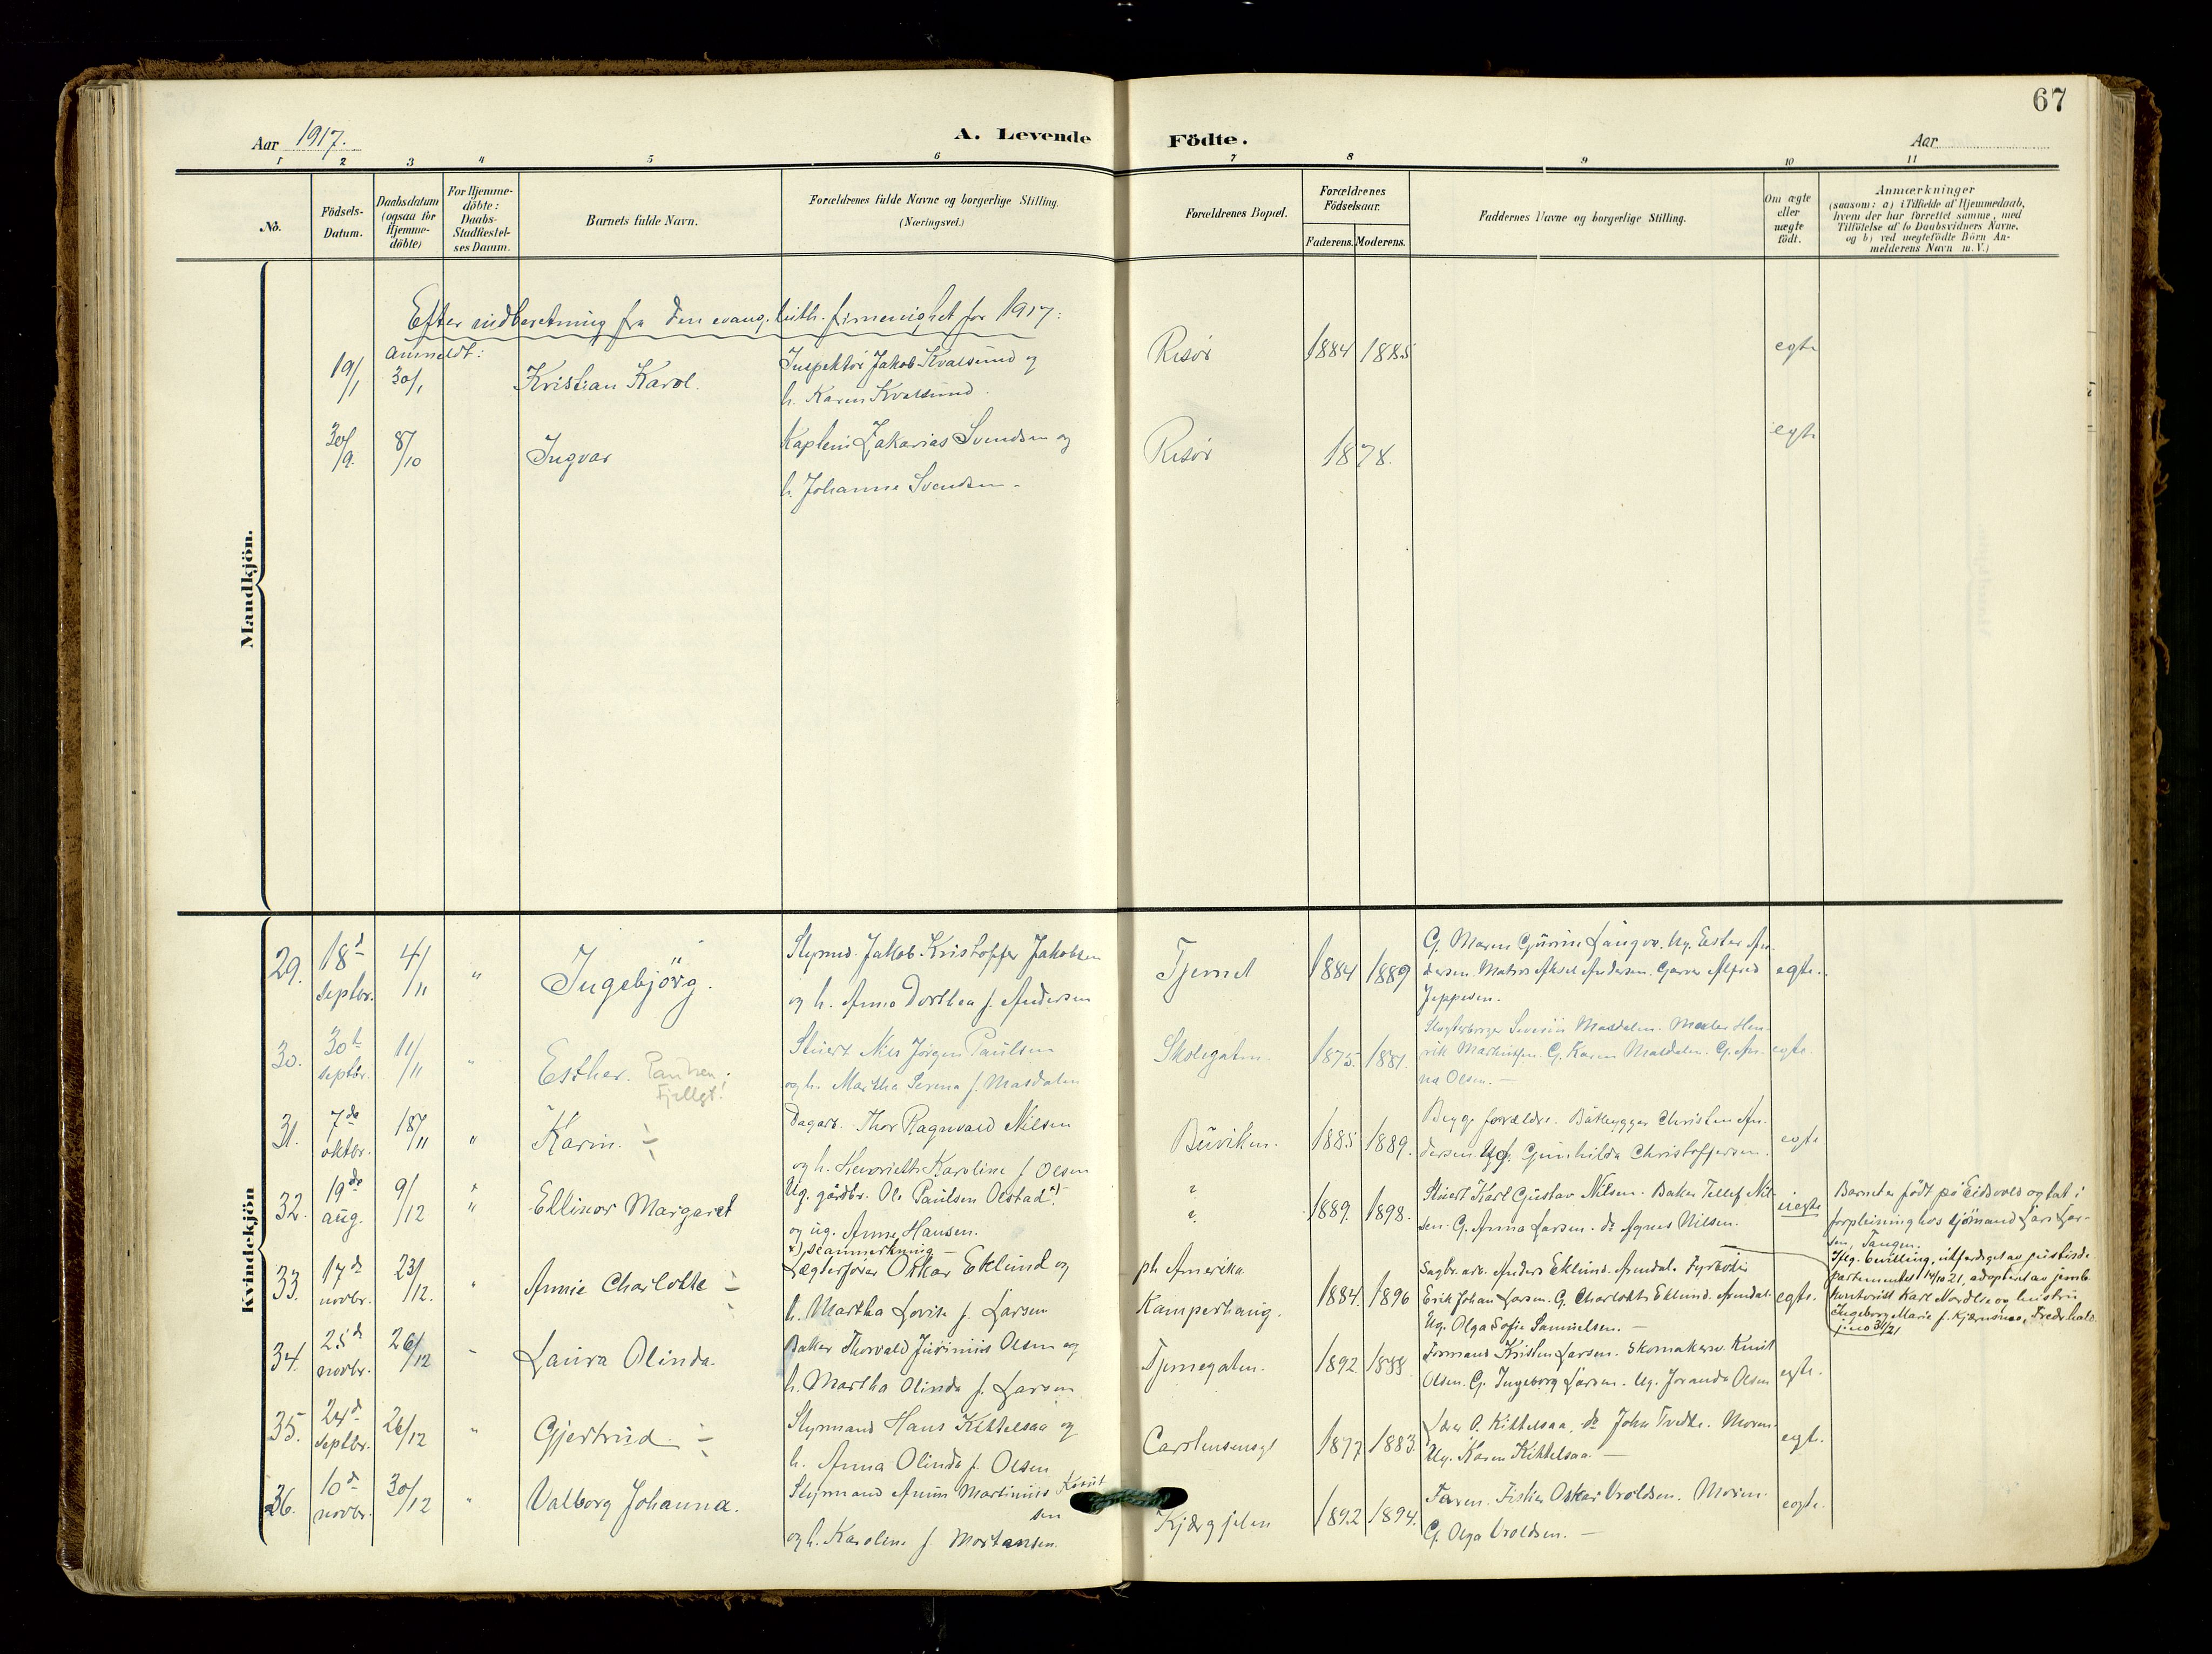 67
Aar 1917.
A. Levende Födte.
Aar
1 2 3 4 5 6 7 8 9 10 11
No.
Födsels-
Datum.
Daabsdatum
(ogsaa for
Hjemme-
döbte)
For Hjemme-
döbte:
Daabs-
Stadfæstel-
ses Datum.
Barnets fulde Navn.
Forældrenes fulde Navne og borgerlige Stilling.
(Næringsvei.)
Forældrenes Bopæl.
Forældrenes
Födselsaar.
Faderens. Moderens.
Faddernes Navne og borgerlige Stilling.
Om ægte
eller
uægte
födt.
Anmærkninger
(saasom: a) i Tilfælde af Hjemmedaab,
hvem der har forrettet samme, med
Tilföielse af to Daabsvidners Navne.
og b) ved uægtefödte Börn An-
melderens Navn m. V.)
Mandkjön.
Efter indberetning fra den evang. luth. frimenighet for 1917:
anmeldt:
19/1 30/1 Kristian Karol.
Inspektör Jakob Kvalsund og
h. Karen Kvalsund.
Risör 1884 1885 egte
30/9. 8/10 Ingvar
Kaptein Zakarias Svendsen og
h. Johanne Svendsen.
Risör 1878. egte
Kvindekjön
29. 18d septbr. 4/11 " Ingebjörg.
Styrmd. Jakob Kristoffer Jakobsen
og h. Anna Dorthea f. Andersen
Tjernet 1884 1889
G. Maren Gurine Langov. Ug. Ester An-
dersen. Matros Aksel Andersen. Garver Alfred
Jeppesen.
egte.
30. 30te septbr. 11/11 " Esther. Paulsen.
Fjellgt!
Stuert Nils Jørgen Paulsen
og h. Martha Serena f. Masdalen
Skolegaten. 1875. 1881.
Severin Masdalen. Hen-
rik G. Karen Masdalen. G. An-
na Olsen. —
egte.
31. 7de oktbr. 18/11 " Karin.
Dagarb. Thor Ragnvald Nilsen
og h. Henriette Karoline f. Olsen
Buviken. 1885 1889.
Begge forældre. Båtbygger Christen An-
dersen. Ug. Gunhilda Christoffersen.
egte
32. 19de aug. 9/12 " Ellinor Margaret
Ug. gårdbr. Ole Paulsen Olstad x)
og ug. Anna Hansen.
x) se anmerkning —
? ? 1889. 1898.
Stuert Karl Gustav Nilsen. Baker Tellef Nil-
sen. G. Anna Larsen. do Agnes Nilsen.
uegte
Barnet er født på Eidsvold og tat i
forpleining hos sjömand Lars Lar-
sen, Tangen.
Iflg. bevilling, utferdiget av justisde-
partementet 14/10 21, adoptert av jernb.
kontorist Karl Nordlie og hustru
Ingeborg Marie f. Kjærnæs, Fredrikstad
31/21
33. 17de novbr. 23/12. " Annie Charlotte
Lægterförer Oskar Eklund og
h. Martha Lovise f. Larsen
pt. Amerika
Kamperhaug. 1884. 1896
Sagbr. arb. Anders Eklund. Arendal. Fyrbøter
Erik Johan Larsen. G. Charlotte Eklund. Arendal.
Ug. Olga Sofie Samuelsen. —
egte.
34. 25de novbr. 26/12 " Laura Olinda.
Baker Thorvald Junius Olsen og
h. Martha Olinda f. Larsen
Tjernegaten. 1892 1888
Formand Kristen Larsen. Skomakersv. Knut
Olsen. G. Ingeborg Larsen. Ug. Joranda Olsen
egte.
35. 24de septbr. 26/12 " Gjertrud
Styrmand Hans Kittelsaa og
h. Anna Olinda f. Olsen
Carstensensgt 1877 1883
O. Kittelsaa. do John Tvedte. Moren.
Ug. Karen Kittelsaa. —
egte.
36. 10de novbr. 30/12 " Valborg Johanna.
Styrmand Martinius Knut-
sen
og h. Karoline f. Mortensen.
1892 1894.
Faren. Fisker Oskar Vroldsen. Moren.
G. Olga Vroldsen. —
egte.